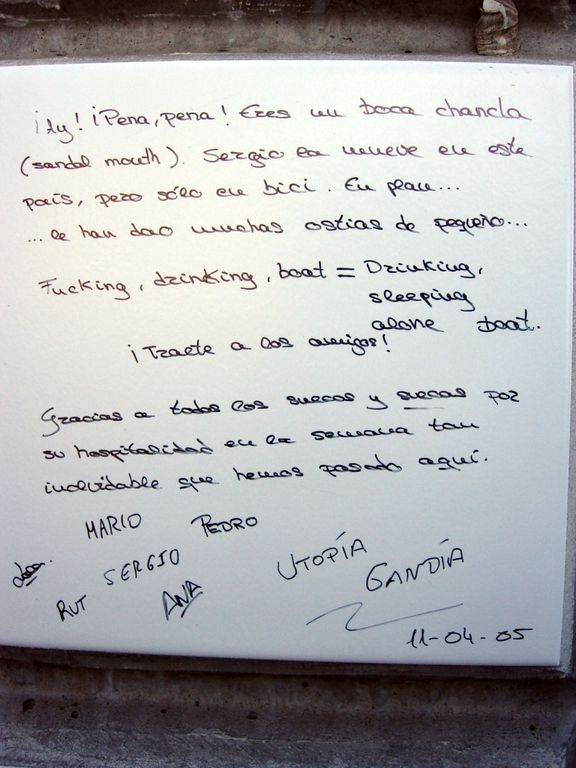 ¡Ay! ¡Pena, pena! Eres un boca chancla
(sandal mouth). Sergio la mueve en este
país, pero sólo en bici. En plan...
...le han dao muchas ostias de pequeño...
Fucking, drinking, boat = Drinking,
sleeping
alone boat.
¡Traete a los amigos!
Gracias a todos los suecos y suecas por
su hospitalidad en la semana tan
inolvidable que hemos pasado aquí.
MARIO PEDRO
SERGIO UTOPÍA
RUT ANA GANDÍA
11-04-05